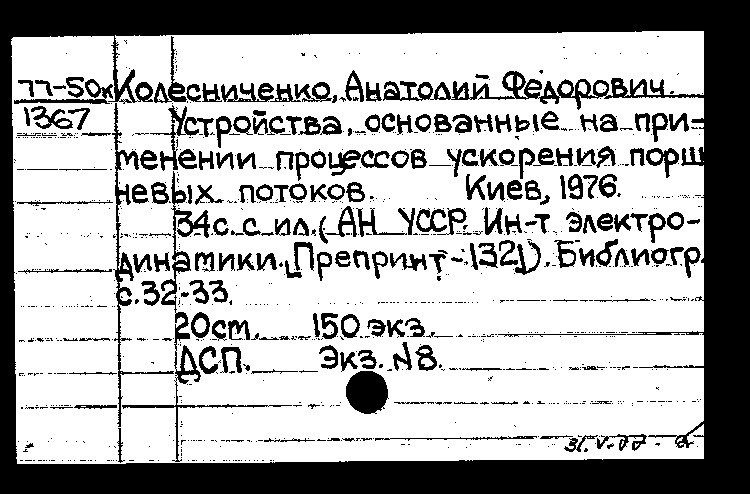 77-50к Колесниченко, Анатолий Федорович.
1367 Устройства, основанные на при-
менении процессов ускорения порш
невых потоков. Киев, 1976.
34с. с ил. (АН УССР. Ин-т электро-
динамики. [Препринт-132]). Библиогр.
с.32-33.
20см. 150 экз.
ДСП. Экз. №8.